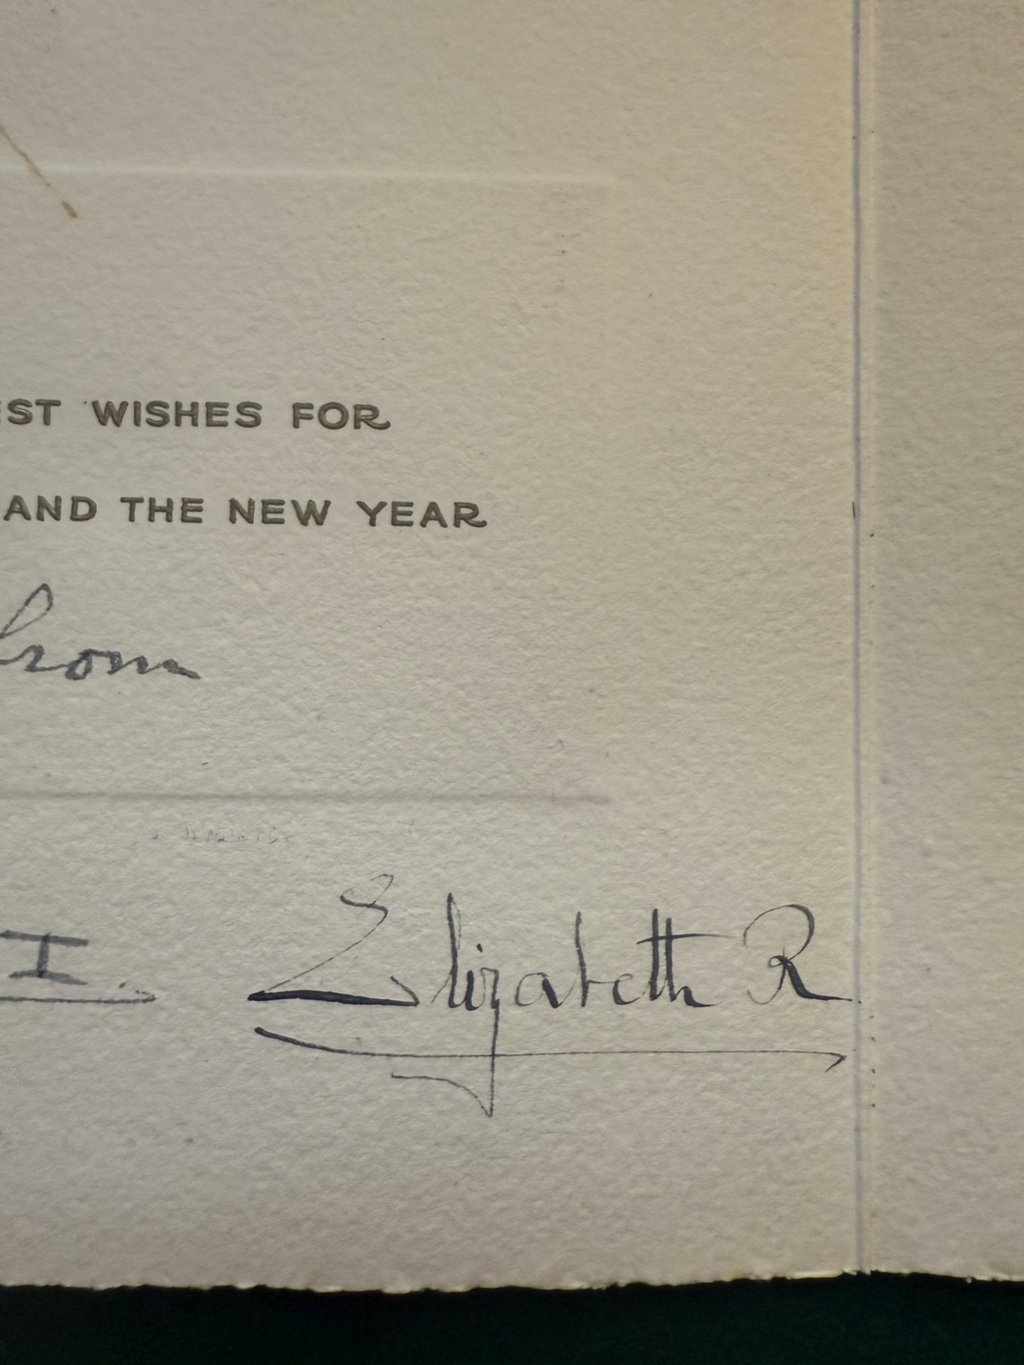 EST WISHES FOR
AND THE NEW YEAR
from
I Elizabeth R